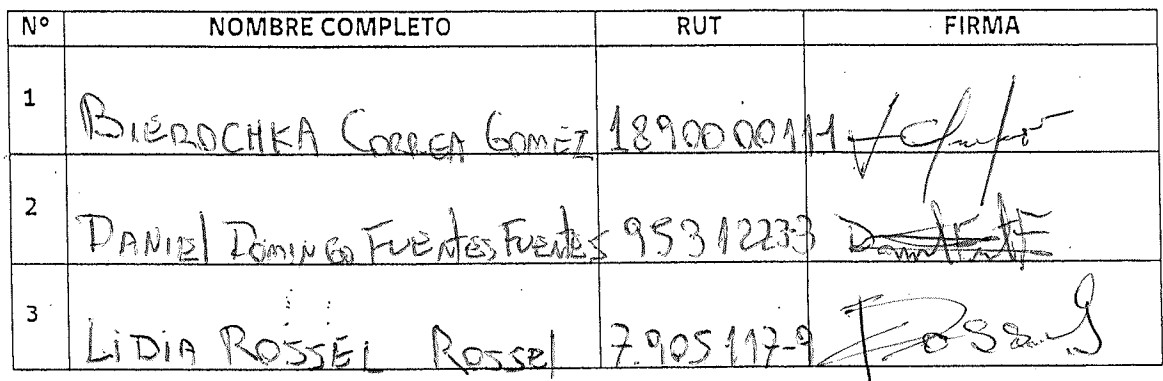 Nº NOMBRE COMPLETO RUT FIRMA
1 BIEROCHKA CORREA GOMEZ
2 DANIEl DOMINGO FUENTES FUENTES 95312233
3 LIDIA ROSSEL ROSSEl 7.905117-9